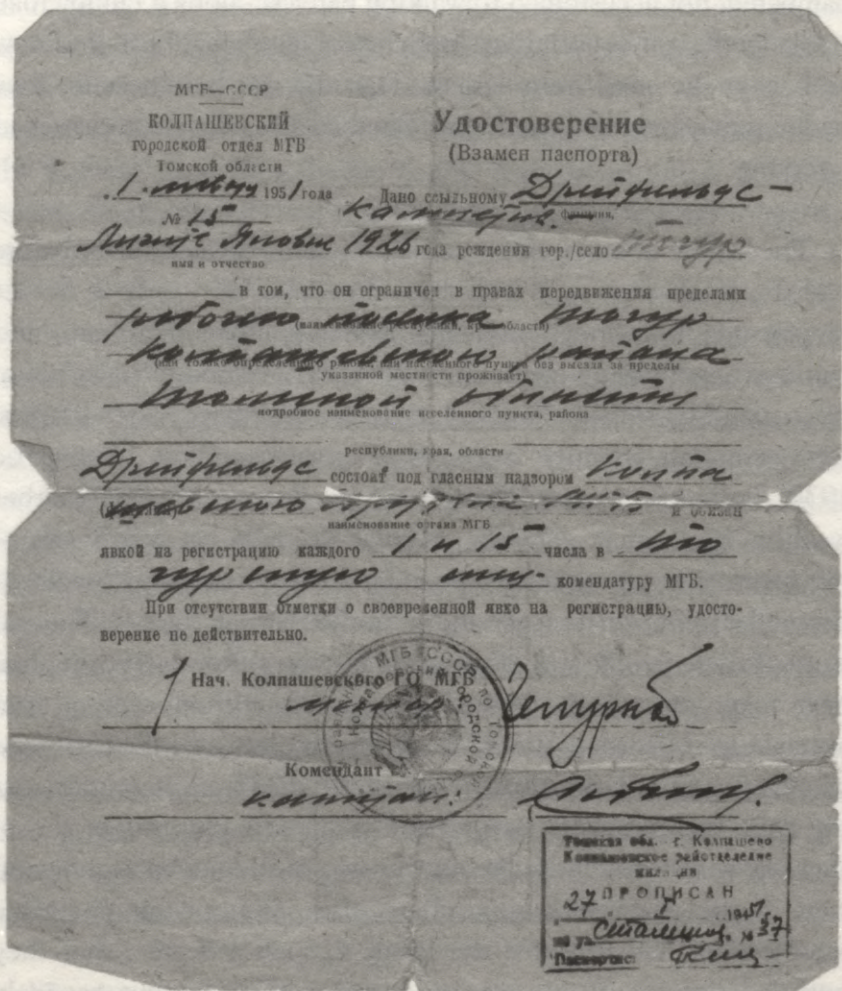 МГБ—СССР
КОЛПАШЕВСКИЙ
городской отдел МГБ
Томской области
1 января 1951 года
№ 15
Удостоверение
(Взамен паспорта)
Дано ссыльному Дрейфельдс-
фамилия,
1926 года рождения гор./село Тогур
имя и отчество
в том, что он ограничен в правах передвижения пределами
рабочего поселка Тогур
(наименование республики, края, области)
Колпашевского района
(или только определенного района, или населенного пункта без выезда за пределы
указанной местности проживает)
Томской области
подробное наименование населенного пункта, района
республики, края, области
Дрейфельдс состоит под гласным надзором Колпа
шевского МГБ и обязан
наименование органа МГБ
явкой на регистрацию каждого 1 и 15 числа в То
гурскую спец- комендатуру МГБ.
При отсутствии отметки о своевременной явке на регистрацию, удосто-
верение не действительно.
Нач. Колпашевского ГО МГБ
майор
Комендант
капитан:
Томская обл. г. Колпашево
Колпашевское райотделение
милиции
ПРОПИСАН
27 1951
на ул. Сталина № 37
Паспортист